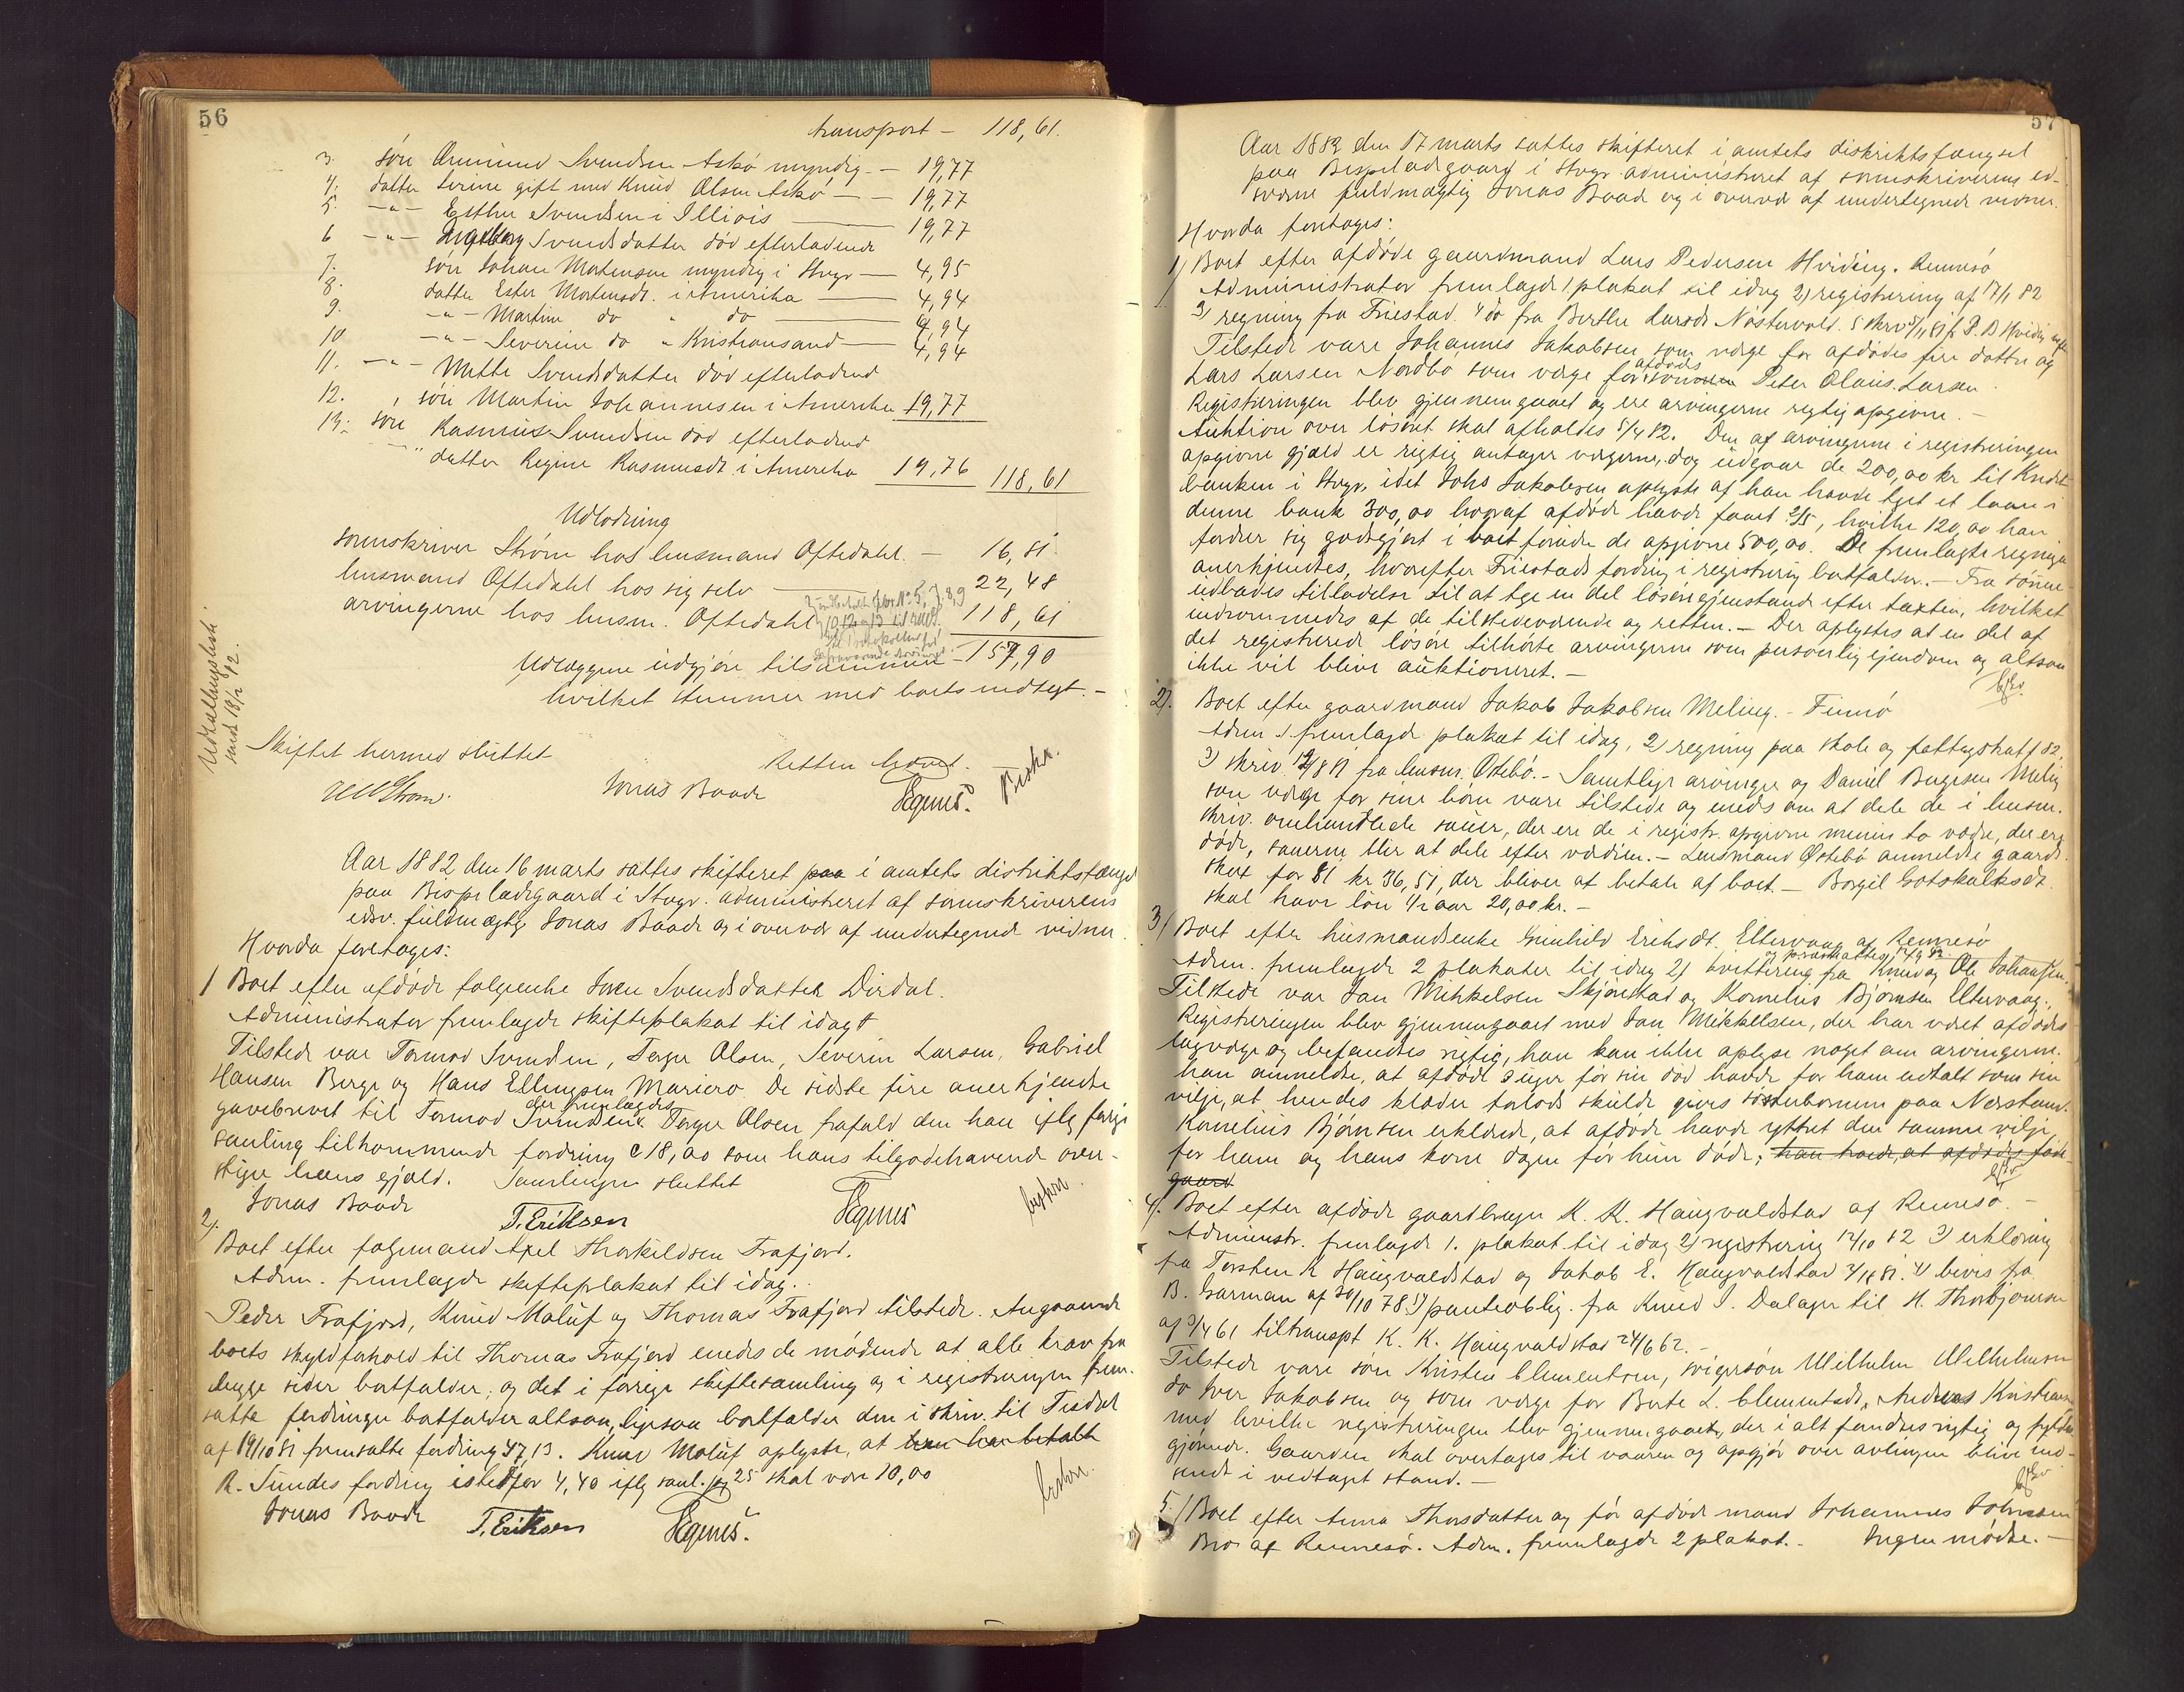 56
transport – 118,61.
3. søn Omund Svendsen Askø myndig. – 19,77
4. datter Serine gift med Knud Olsen Askø – – 19,77
5. –"– Esther Svendsen i Illiois – 19,77
6 –"– Ingeborg Svendsdatter død efterladende
7. søn Johan Mortensen myndig i Stvgr – 4,95
8. datter Ester Mortensdt. i Amerika – 4,94
9. –"– Martine do " do – 4,94
10 –"– Severine do " Kristiansand – 4,94
11. –"– Mette Svendsdatter død efterladend
12. søn Martin Johannesen i Amerika 19,77
13. søn Rasmus Svendsen død efterladend
" datter Regine Rasmusdt. i Amerika 19,76 118,61
Udlodning
sorenskriver Strøm hos lensmand Oftedahl. – 16,81
lensmand Oftedahl hos sig selv – 22,48
arvingerne hos lensm. Oftedahl 118,61
Udlæggene udgjør tilsammen – 157,90
hvilket stemmer med boets indtægt. –
Udbetalingsliste
sendt 18/12 82.
Skiftet hermed sluttet
Retten hævet.
Jonas Baade
Egenes.
Beskr.
Aar 1882 den 16 marts sattes skifteret paa i amtets distriktsfængsel
paa Bispeladegaard i Stvgr. administreret af sorenskriverens
edsv. fuldmægtig Jonas Baade og i overvær af undertegnede vidner.
Hvorda foretoges:
1 Boet efter afdøde følgeenke Svendsdatter Dirdal.
Administrator fremlagde skifteplakat til idag
Tilstede var Tormod Svendsen, Torger Olsen, Severin Larsen, Gabriel
Hansen Berge og Hans Ellingsen Mariero. De sidste fire anerkjendte
der fremlagdes
gavebrevet til Tormod Svendsen. Torger Olsen frafald den han iflg forrige
samling tilkommende fordring c 18,00 som hans tilgodehavende over-
stiger hans gjæld. Samlingen sluttet
Jonas Baade
T. Eriksen
Egenes
beskrv.
2/.
Boet efter følgemand Axel Thorkildsen Frafjord.
Adm. fremlagde skifteplakat til idag.
Peder Frafjord, Knud Maluf og Thomas Frafjord tilstede. Angaaende
boets skyldforhold til Thomas Frafjord enedes de mødende at alle krav fra
begge sider bortfalder, og det i forrige skiftesamling og i registreringen frem-
satte fordringer bortfalder altsaa, ligesaa bortfalder den i skriv. til Tisdal
af 19/10 81 fremsatte fordring 47,13. Knud Maluf oplyste, at han har betalt
R. Sundes fordring istedfor 4,40 iflg saml. pg 25 skal være 10,00
Jonas Baade
T. Eriksen
Egenes.
beskrv.
57
Aar 1882 den 17 marts sattes skifteret i amtets distriktsfængsel
paa Bispeladegaard i Stvgr. administreret af sorenskriverens ed-
svorne fuldmægtig Jonas Baade og i overvær af undertegnede vidner.
Hvorda foretoges:
1/ Boet efter afdøde gaardmand Lars Pedersen Hviding. Rennesø
Administrator fremlagde 1, plakat til idag 2) registrering af 17/1 82
3, regning fra Friestad. 4 do fra Berthe Larsdt Nøstervold. 5 skriv
Tilstede vare Johannes Jakobsen som værge for afdødes fire døttre og
Lars Larsen Nordbø som værge for afdødes sønnesøn Peter Olaus Larsen.
Registreringen blev gjennemgaaet og ere arvingerne rigtig opgivne. –
Auktion over løsøret skal afholdes 5/4 82. Den af arvingerne i registreringen
opgivne gjæld er rigtig antager værgerne, dog udgaar de 200,00 kr til Kredit-
banken i Stvgr, idet Johs Jakobsen oplyste af han havde taget et laan i
denne bank 300,00 hvoraf afdøde havde faaet 2/5, hvilke 120,00 han
fordrer sig godtgjort i boet foruden de opgivne 500,00. De fremlagte regninger
anerkjendtes, hvorefter Friestads fordring i registrering bortfalder. –
udbades tilladelse til at tage en del løsøregjenstande efter taxten, hvilket
indrømmedes af de tilstedeværende og retten. – Der oplystes at en del af
det registrerede løsøre tilhørte arvingerne som personlig ejendom og altsaa
ikke vil blive auktioneret. –
2/. Boet efter gaardmand Jakob Jakobsen Meling. – Finnø
Adm 1. fremlagde plakat til idag, 2) regning paa skole og fattigskat f 82.
3) skriv 12/8 81 fra lensm. Østebø. – Samtlige arvinger og Daniel Meling
som værge for sine børn vare tilstede og enedes om at dele de i lensm.
skriv. omhandlede sauer, der ere de i registr. opgivne minus to væder, der ere
døde, sauerne blir at dele efter værdien. – Lensmand Østebø anmeldte gaards-
skat for 81 kr 36,51, der bliver at betale af boet – Borgil Gotskalksdt.
skal have løn 1/2 aar 20,00 kr. –
3/ Boet efter husmandsenke Gunhild Eriksdt. Eltervaag af Rennesø
Adm. fremlagde 2 plakater til idag 2) kvittering fra Knud og Ole Johansen.
Tilstede var Jan Mikkelsen Skjørestad og Kornelius Bjørnsen Eltervaag.
Registreringen blev gjennemgaaet med Jan Mikkelsen, der har været afdødes
lagværge og befandtes rigtig, han kan ikke oplyse noget om arvingerne.
han anmeldte, at afdøde 3 uger før sin død havde for ham udtalt som sin
vilje, at hendes klæder tilods skulde gives søsterbørnene paa
Kornelius Bjørnsen erklærede, at afdøde havde yttret den samme vilje
for ham og hans kone dagen før hun døde; han troede, at afdødes føde-
gaard
4/. Boet efter afdøde gaardbruger K. K. Haugvaldstad af Rennesø. –
Administr. fremlagde 1. plakat til idag 2) registrering 12/10 82 3) erklæring
fra Torsten K Haugvaldstad og Jakob E. Haugvaldstad 4) bevis fra
B. Garman af 30/10 78 5) panteoblig. fra Knud I. Dalager til H. Thorbjørnsen
af 3/4 61 tiltranspt K. K. Haugvaldstad 24/6 62. –
Tilstede vare søn Kristen Clementsen, svigersøn Wilhelm Wilhelmsen
do Iver Jakobsen og som værge for Berte L. Clementsdt, Andreas Kristiansen
med hvilke registreringen blev gjennemgaaet, der i alt fandtes rigtig og fyldest-
gjørende. Gaarden skal overtages til vaaren og opgjør over avlingen blive ind-
sendt i vedtaget stand. –
5./ Boet efter Anna Thorsdatter og før afdøde mand Johannes Johnsen
Bro af Rennesø. Adm. fremlagde 2 plakat. – Ingen mødte. –